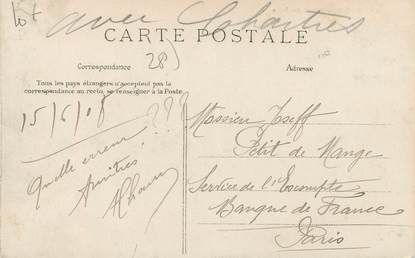 avec Chartres
CARTE POSTALE
28)
Correspondance
Adresse
Tous les pays étrangers n'acceptent pas la
correspondance au recto, se renseigner à la Poste
15/6/08
???
Quelle erreur
Amitiés,
Monsieur Joseff
Petit de Mange
Service de l'Escompte
Banque de France
Paris